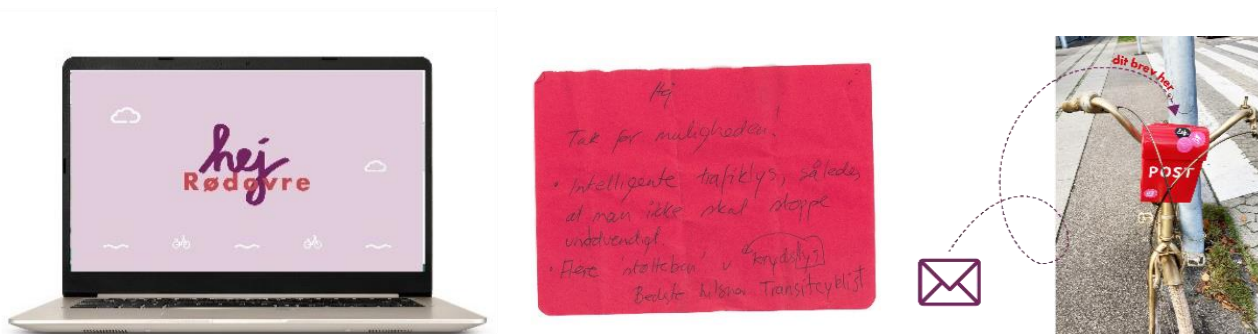 hej
Rødovre
Hej
Tak for muligheden!
• Intelligente trafiklys, således
at man ikke skal stoppe
unødvendigt.
• Flere "støtteben" v. krydslys
Bedste hilsner Transitcyklist
dit brev her
POST